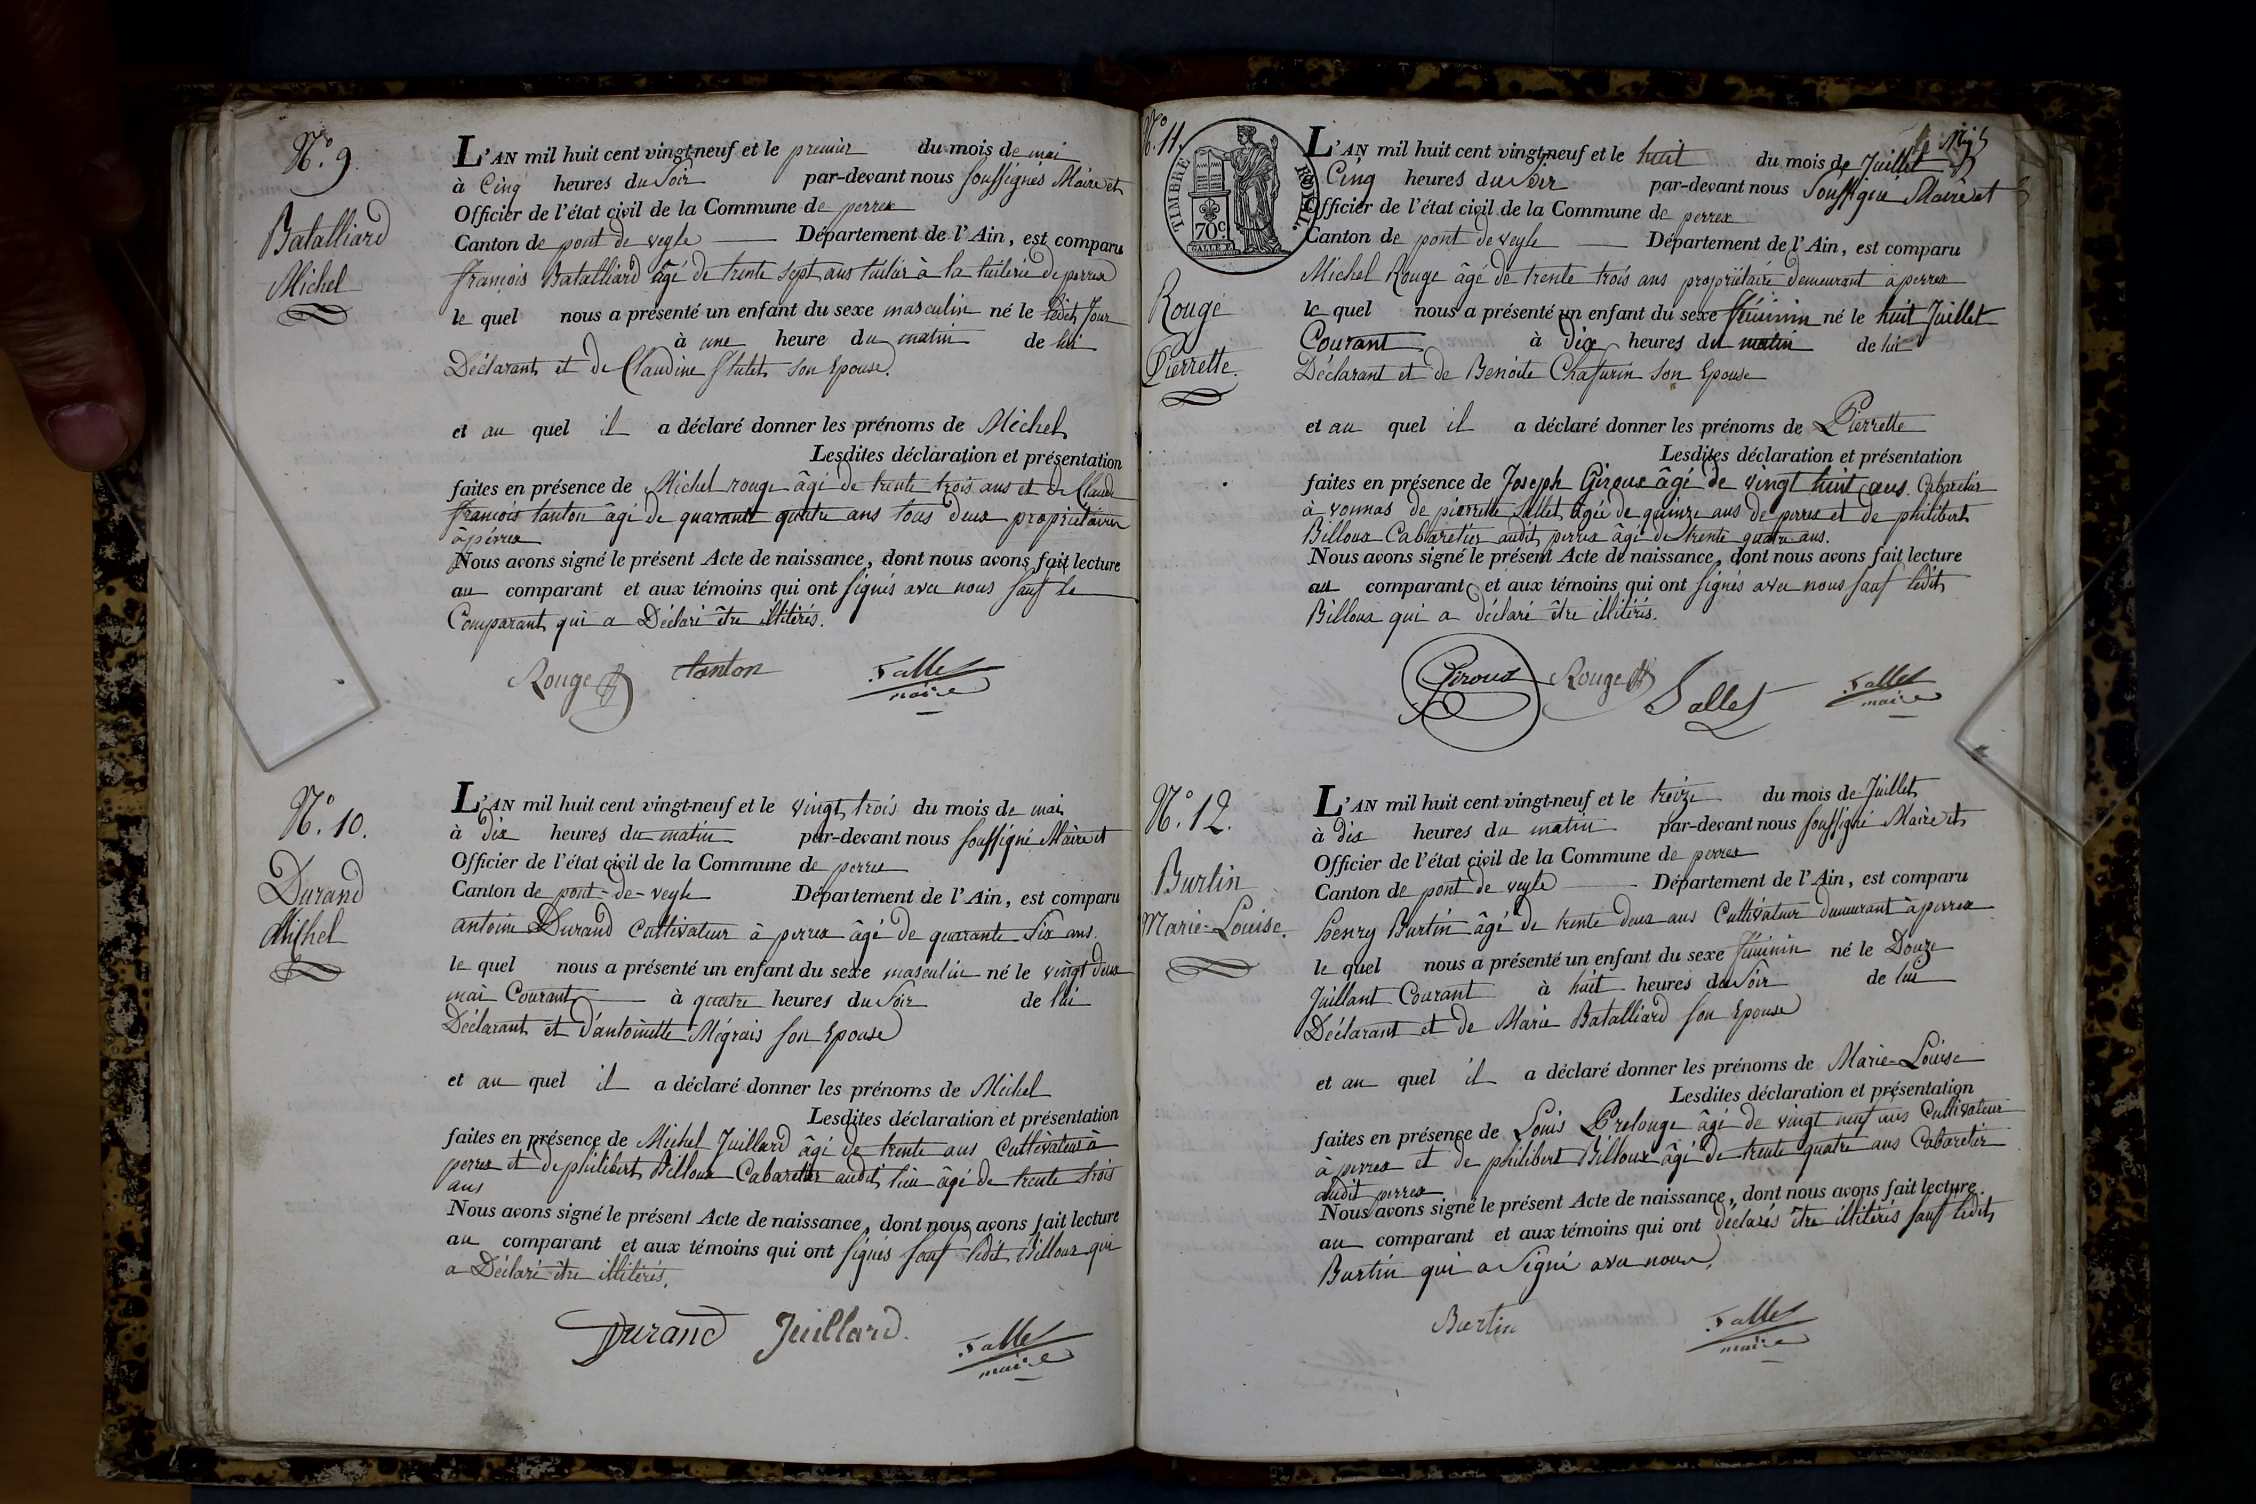 N.º 9
Batalliard
Michel
L'AN mil huit cent vingt-neuf et le premier du mois de mai
à Cinq heures du Soir par-devant nous soussignés Maire et
Officier de l'état civil de la Commune de perrex
Canton de pont de veyle Département de l'Ain, est comparu
françois Batalliard âgé de trente sept ans tuilier à la tuilerie de perrex
le quel nous a présenté un enfant du sexe masculin né le ledit Jour
à une heure du matin de lui
Déclarant et de Claudine son Epouse.
et au quel il a déclaré donner les prénoms de Michel
Lesdites déclaration et présentation
faites en présence de Michel rouge âgé de trente trois ans et de Claude
françois tanton âgé de quarante quatre ans tous deux propriétaires
à perrex
Nous avons signé le présent Acte de naissance, dont nous avons fait lecture
au comparant et aux témoins qui ont signés avec nous sauf le
Comparant qui a Déclaré être illitérés.
Rouge tanton Sallet
maire
N.º 10.
Durand
Michel
L'AN mil huit cent vingt-neuf et le vingt trois du mois de mai
à dix heures du matin par-devant nous soussigné Maire et
Officier de l'état civil de la Commune de perrex
Canton de pont-de-veyle Département de l'Ain, est comparu
antoine Durand Cultivateur à perrex âgé de quarante Six ans.
le quel nous a présenté un enfant du sexe masculin né le vingt deux
mai Courant à quatre heures du Soir de lui
Déclarant et d'antoinette Mégrais son Epouse
et au quel il a déclaré donner les prénoms de Michel
Lesdites déclaration et présentation
faites en présence de Michel Juillard âgé de trente ans Cultivateur à
perrex et de philibert Billoux Cabaretier audit lieu âgé de trente trois
ans
Nous avons signé le présent Acte de naissance, dont nous avons fait lecture
au comparant et aux témoins qui ont signés sauf ledit Billoux qui
a Déclaré être illitérés.
Durand Juillard. Sallet
maire
N.º 11.
TIMBRE ROYAL
70c.
Rouge
Pierrette.
L'AN mil huit cent vingt-neuf et le huit du mois de Juillet
Cinq heures du Soir par-devant nous Soussigné Maire et
Officier de l'état civil de la Commune de perrex
Canton de pont de veyle Département de l'Ain, est comparu
Michel Rouge âgé de trente trois ans propriétaire demeurant à perrex
le quel nous a présenté un enfant du sexe féminin né le huit Juillet
Courant à dix heures du matin de lui
Déclarant et de Benoite Chafurin son Epouse
et au quel il a déclaré donner les prénoms de Pierrette
Lesdites déclaration et présentation
faites en présence de Joseph Giroux âgé de vingt huit ans Cabaretier
à vonnas de pierrette Sallet âgée de quinze ans de perrex et de philibert
Billoux Cabaretier audit perrex âgé de trente quatre ans.
Nous avons signé le présent Acte de naissance, dont nous avons fait lecture
au comparant et aux témoins qui ont signés avec nous sauf ledit
Billoux qui a déclaré être illitérés.
Giroux Rouge Sallet Sallet
maire
N.º 12.
Burtin
Marie-Louise.
L'AN mil huit cent vingt-neuf et le treize du mois de Juillet
à dix heures du matin par-devant nous soussigné Maire et
Officier de l'état civil de la Commune de perrex
Canton de pont de veyle Département de l'Ain, est comparu
henry Burtin âgé de trente deux ans Cultivateur demeurant à perrex
le quel nous a présenté un enfant du sexe féminin né le Douze
Juillant Courant à huit heures du Soir de lui
Déclarant et de Marie Batalliard son Epouse
et au quel il a déclaré donner les prénoms de Marie-Louise
Lesdites déclaration et présentation
faites en présence de Louis Prelonge âgé de vingt neuf ans Cultivateur
à perrex et de philibert Billoux âgé de trente quatre ans Cabaretier
audit perrex
Nous avons signé le présent Acte de naissance, dont nous avons fait lecture
au comparant et aux témoins qui ont déclarés être illitérés sauf ledit
Burtin qui a Signé avec nous.
Burtin Sallet
maire